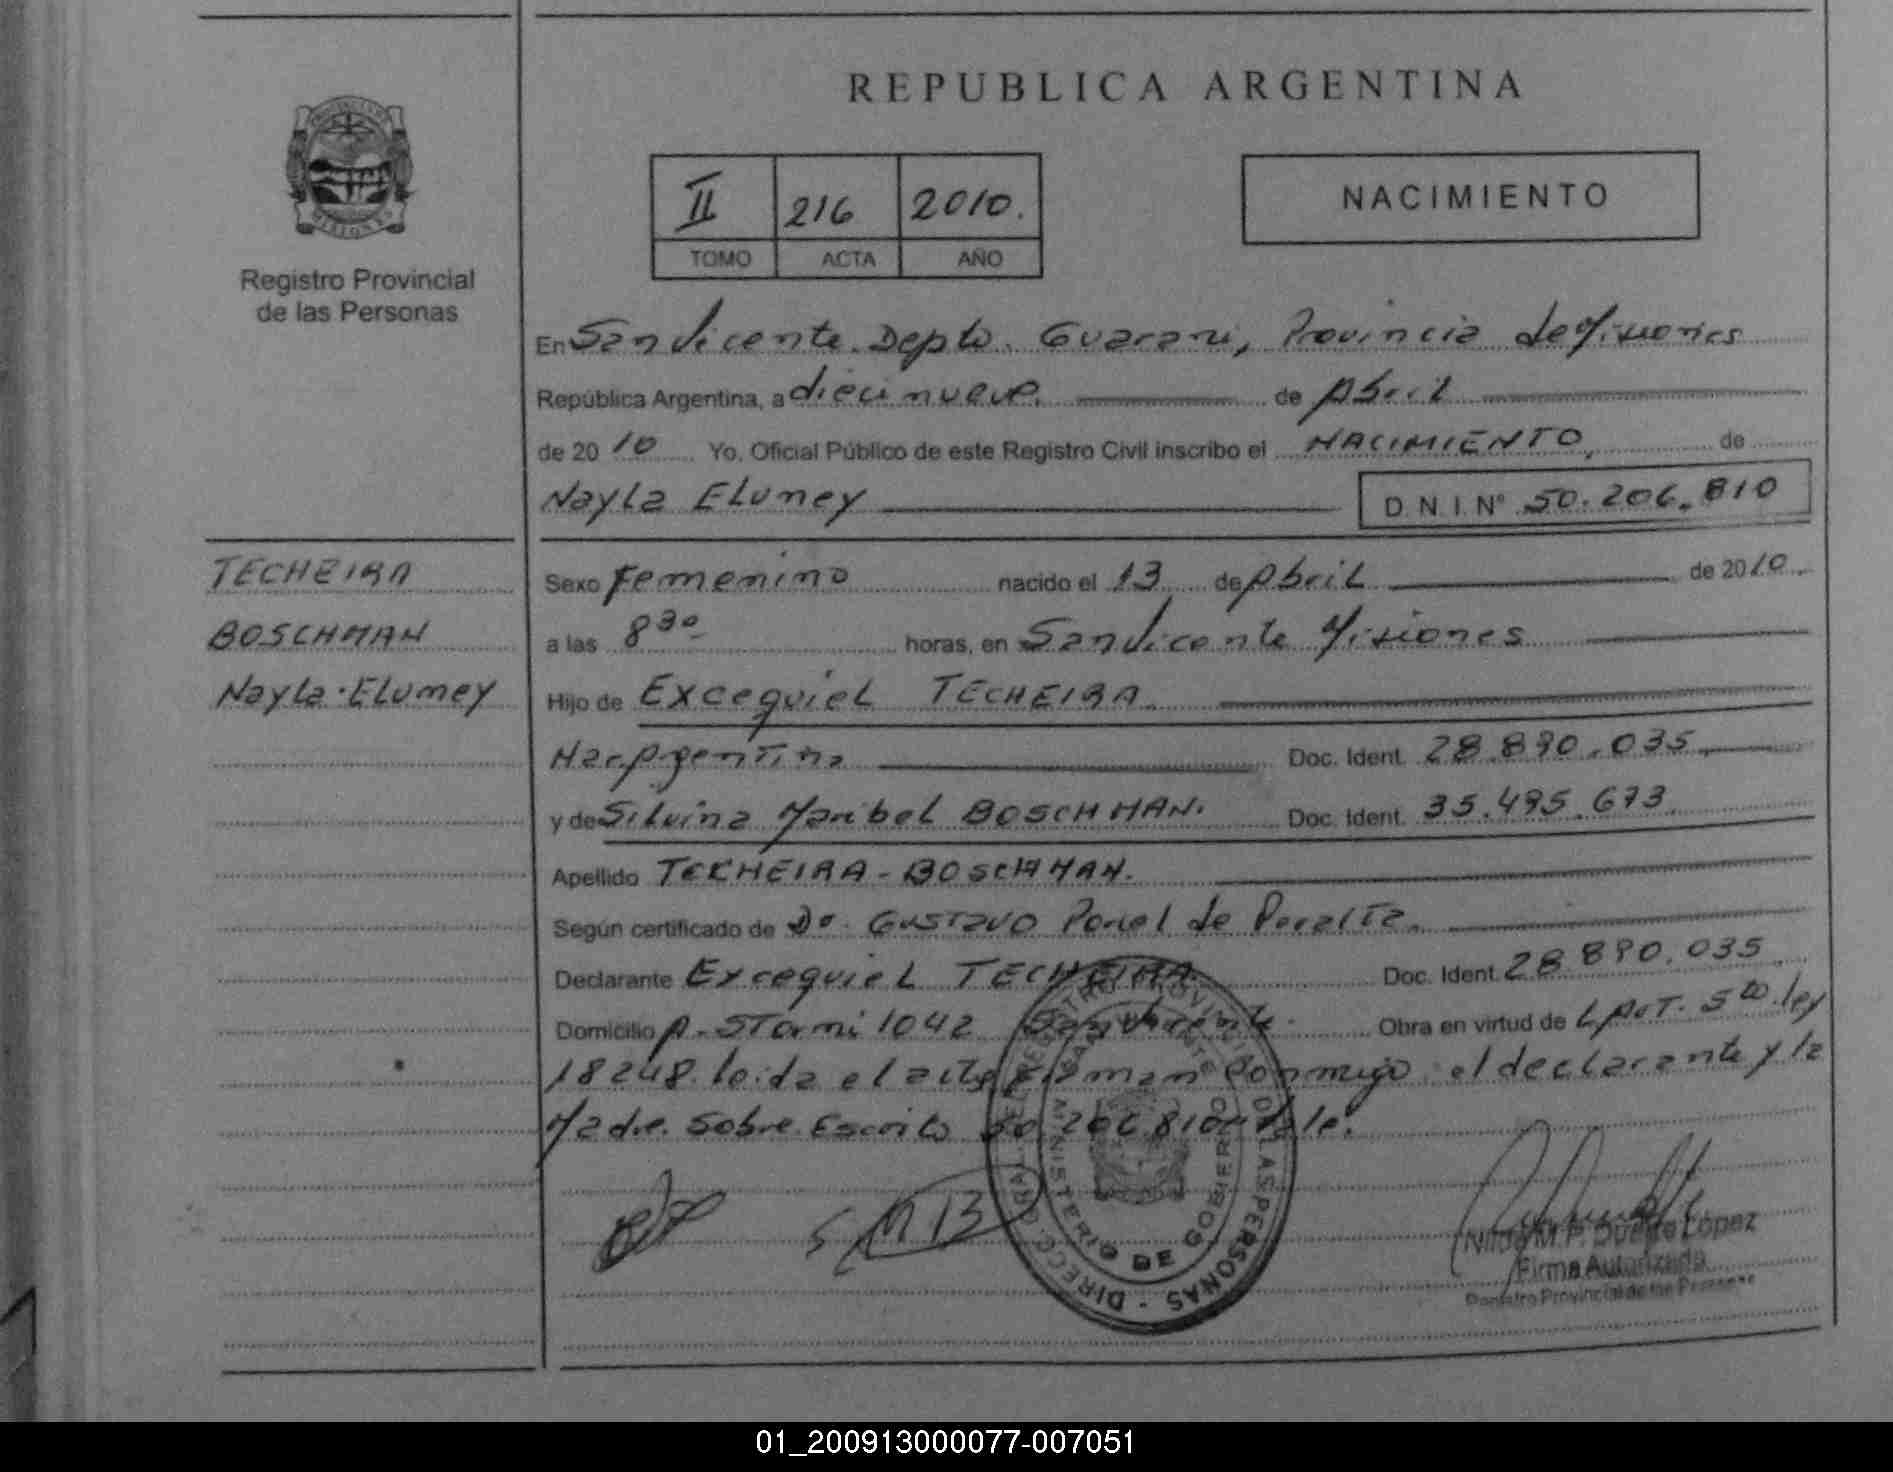 REPUBLICA ARGENTINA
II 216 2010.
TOMO ACTA AÑO
NACIMIENTO
Registro Provincial
de las Personas
En San Vicente. Depto. Guarani, Provincia de Misiones
República Argentina, a diecinueve. de Abril
de 20 10 Yo, Oficial Público de este Registro Civil inscribo el NACIMIENTO, de
Nayla Elumey D.N.I. Nº 50.206.810
TECHEIRA
BOSCHMAN
Nayla Elumey
Sexo Femenino nacido el 13 de Abril de 2010.
a las 8 30 horas, en San Vicente Misiones
Hijo de Excequiel TECHEIRA.
Nac. Argentina Doc. Ident. 28.890.035
y de Silvina Maribel BOSCHMAN. Doc. Ident. 35.495.673
Apellido TECHEIRA - BOSCHMAN.
Según certificado de Dr. Gustavo de Peralta.
Declarante Excequiel TECHEIRA Doc. Ident. 28 890.035
Domicilio A. Storni 1042 San Vicente. Obra en virtud de L Art. 5to. ley
18248. leida el acta firman conmigo el declarante y la
Madre. Sobre Escrito 50.206.810 vale.
SMB
DIRECC. GRAL. DEL REGISTRO PROVINCIAL DE LAS PERSONAS
MINISTERIO DE GOBIERNO
SAN VICENTE
Nilda M. P. Duarte López
Firma Autorizada
Registro Provincial de las Personas
01_200913000077-007051